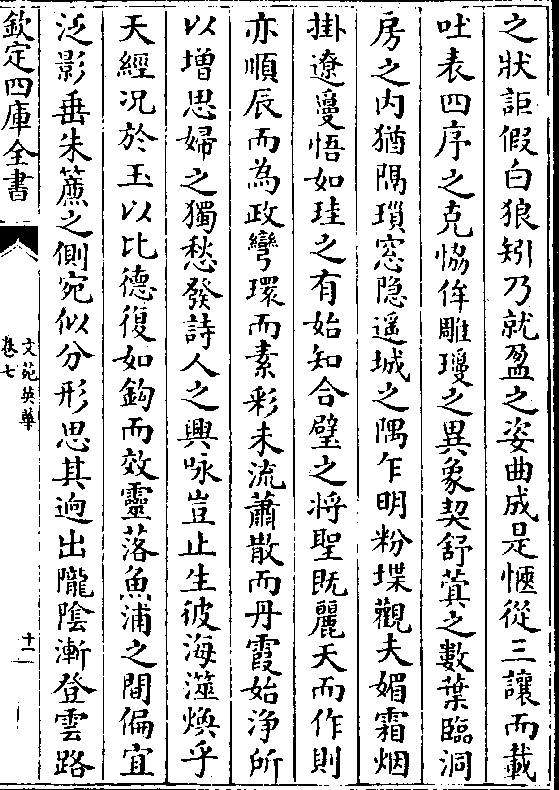 之狀詎假白狼矧乃就盈之姿曲成是愜從三讓而載
吐表四序之克恊侔雕瓊之異象契舒蓂之數葉臨洞
房之内猶隔瑣窓隐遥城之隅乍明粉堞觀夫媚霜烟
掛遼夐悟如珪之有始知合璧之将聖既麗天而作則
亦順辰而為政彎環而素彩未流蕭散而丹霞始浄所
以增思婦之獨愁發詩人之興咏豈止生彼海澨煥乎
天經况於玉以比德復如鈎而效靈落魚浦之間偏宜
泛影垂朱簾之側宛似分形思其逈出隴陰漸登雲路
欽定四庫全書
文苑英華
卷七
十一